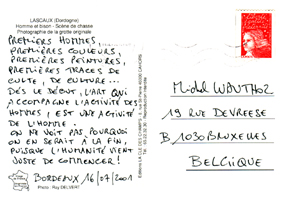 LASCAUX (Dordogne)
Homme et bison - Scène de chasse
Photographie de la grotte originale
PREMIERS HOMMES,
PREMIÈRES COULEURS,
PREMIÈRES PEINTURES,
PREMIÈRES TRACES DE
CULTE, DE CULTURE...
DÈS LE DÉBUT, L'ART QUI
ACCOMPAGNE L'ACTIVITÉ DES
HOMMES, EST UNE ACTIVITÉ
DE L'HOMME.
ON NE VOIT PAS POURQUOI
ON EN SERAIT À LA FIN,
PUISQUE L'HUMANITÉ VIENT
JUSTE DE COMMENCER!
BORDEAUX 16/07/2001
Photo - Ray DELVERT
Michel WAUTHOZ
19 RUE DEVREESE
B 1030 BRUXELLES
BELGIQUE